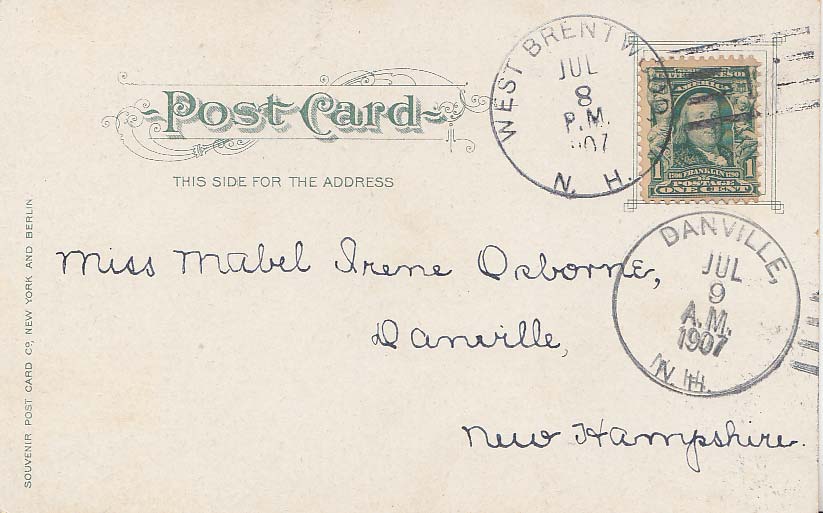 Post Card
THIS SIDE FOR THE ADDRESS
WEST BRENTWOOD
JUL
8
P.M.
1907
N. H.
AMERICA
1706 FRANKLIN 1790
1 1
POSTAGE
ONE CENT
DANVILLE,
JUL
9
A.M.
1907
N.H.
Miss Mabel Irene Osborne,
Danville,
New Hampshire.
SOUVENIR POST CARD Cº, NEW YORK AND BERLIN